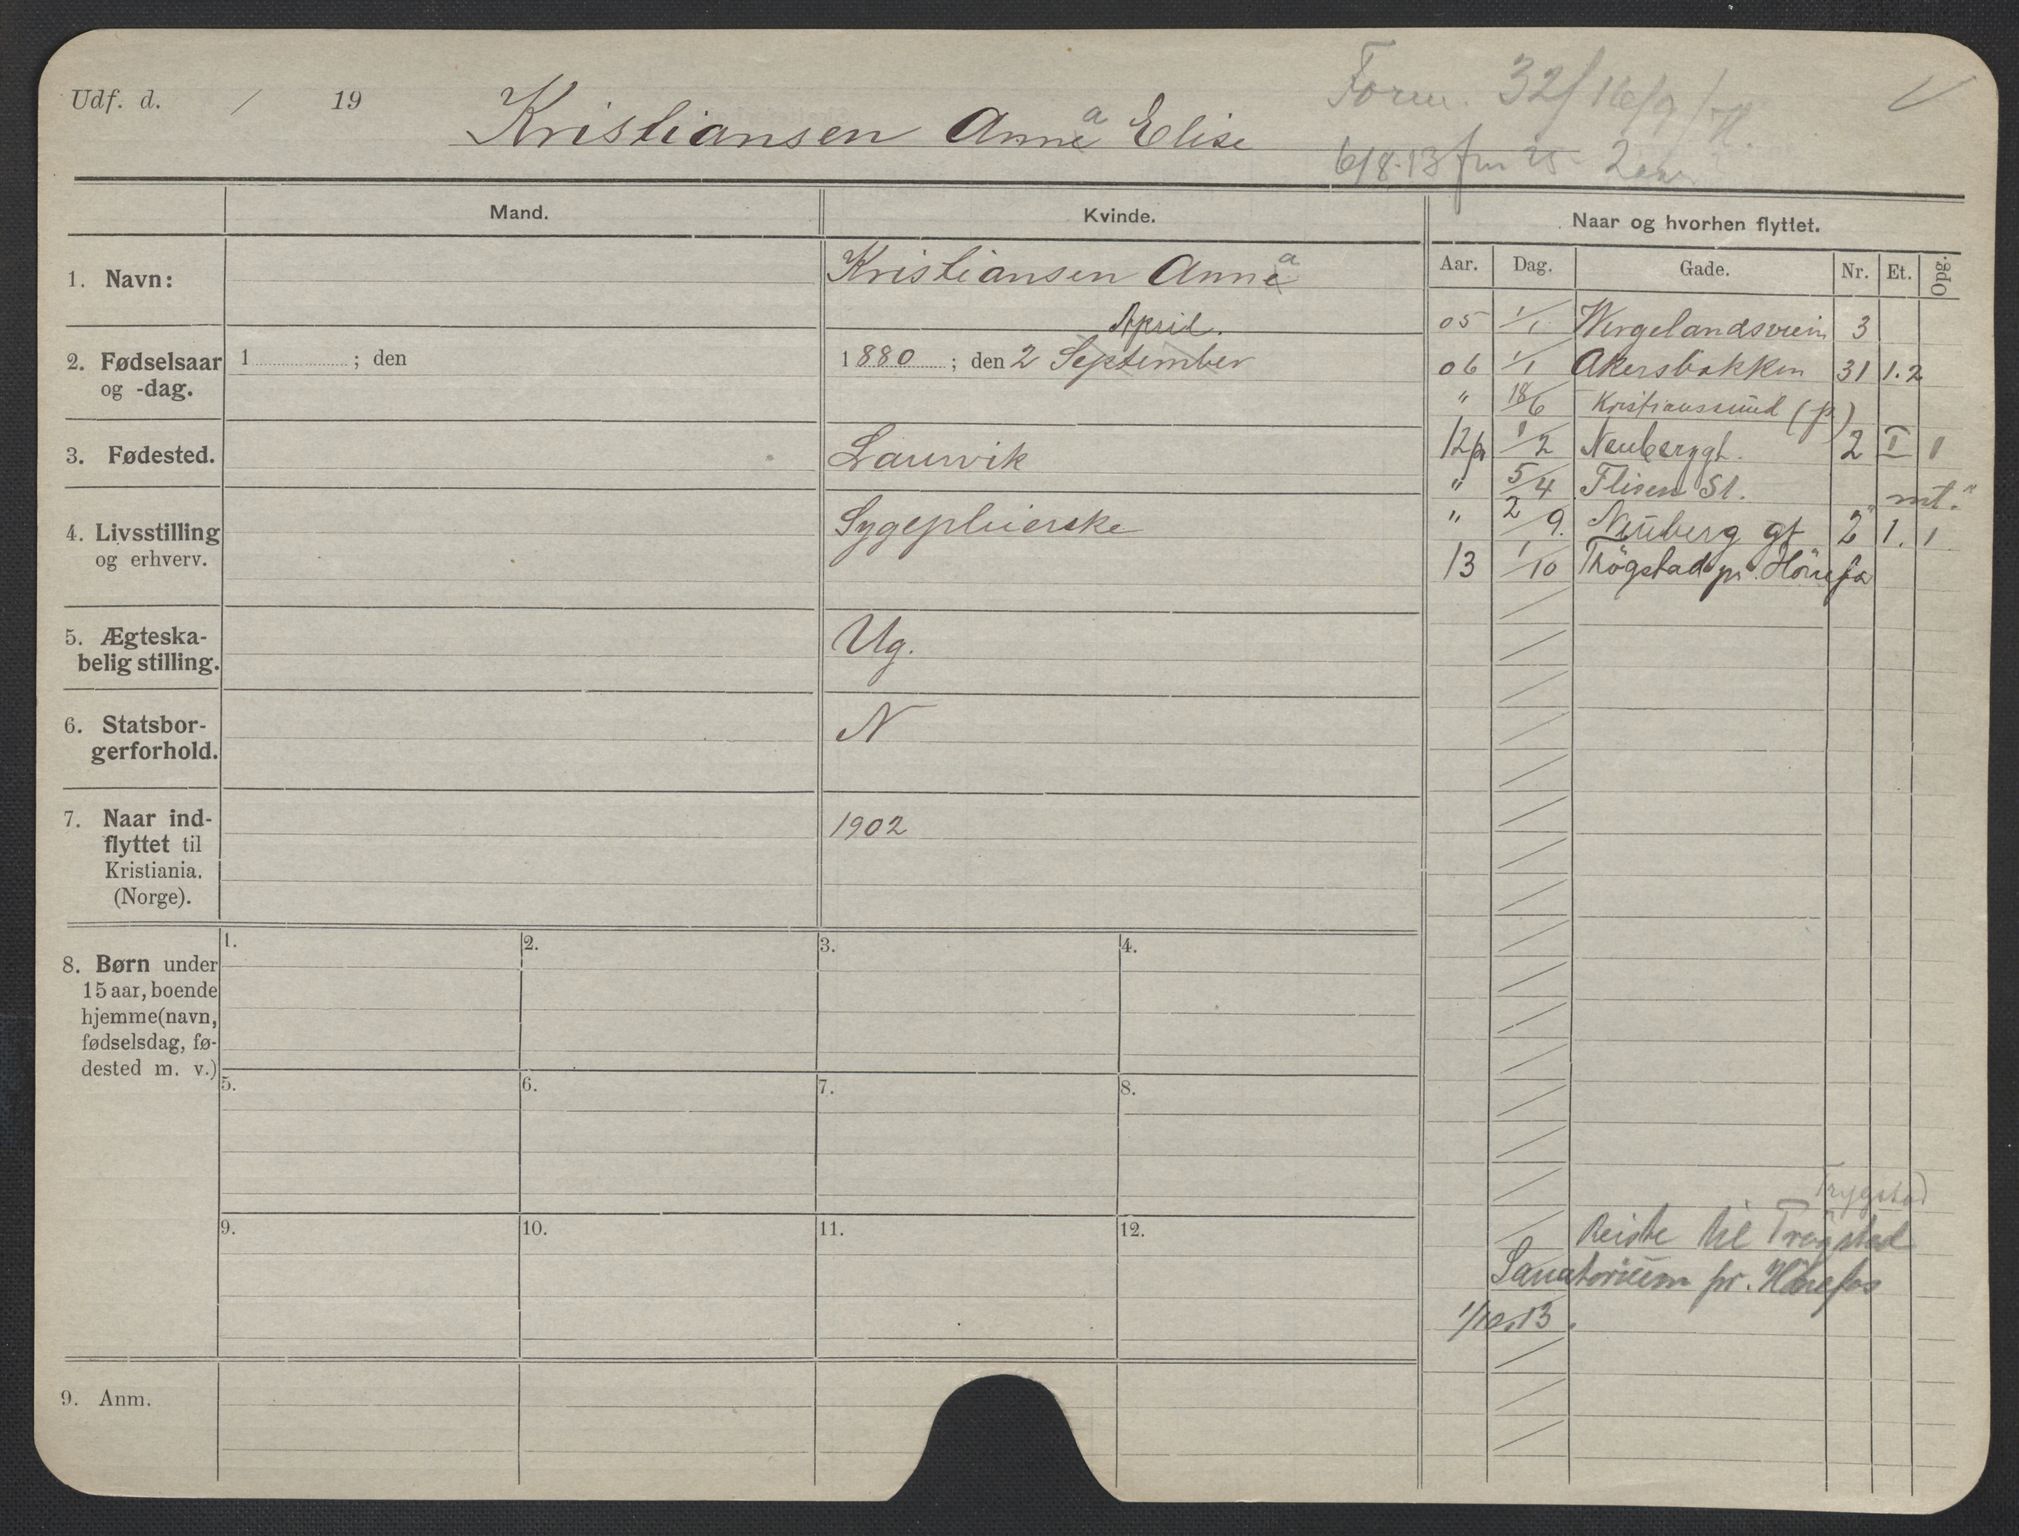 Udf. d. / 19 Kristiansen Anna Elise
Form. 32/ 16/9
6/8-13
Mand.
Kvinde.
Naar og hvorhen flyttet.
Aar. Dag. Gade. Nr. Et. Opg.
1. Navn:
Kristiansen Anna
2. Fødselsaar
og -dag.
1 ; den
April.
1880 ; den 2 September
3. Fødested.
Laurvik
4. Livsstilling
og erhverv.
Sygepleierske
5. Ægteska-
belig stilling.
Ug.
6. Statsbor-
gerforhold.
N
7. Naar ind-
flyttet til
Kristiania.
(Norge).
1902
05 1/1 Wergelandsveien 3
06 1/1 Akersbakken 31 1.2
" 18/6 Kristianssund (p)
12 1/2 Neuberggt. 2 I 1
" 5/4 Flisen St. mt."
" 2/9. Neuberg gt 2 1. 1
13 1/10 Thøgstad pr. Hönefos
8. Børn under
15 aar, boende
hjemme (navn,
fødselsdag, fø-
dested m. v.)
1. 2. 3. 4.
5. 6. 7. 8.
9. 10. 11. 12.
Trygstad
Reiste til Trøgstad
Sanatorium pr. Hönefos
1/10.13.
9. Anm.